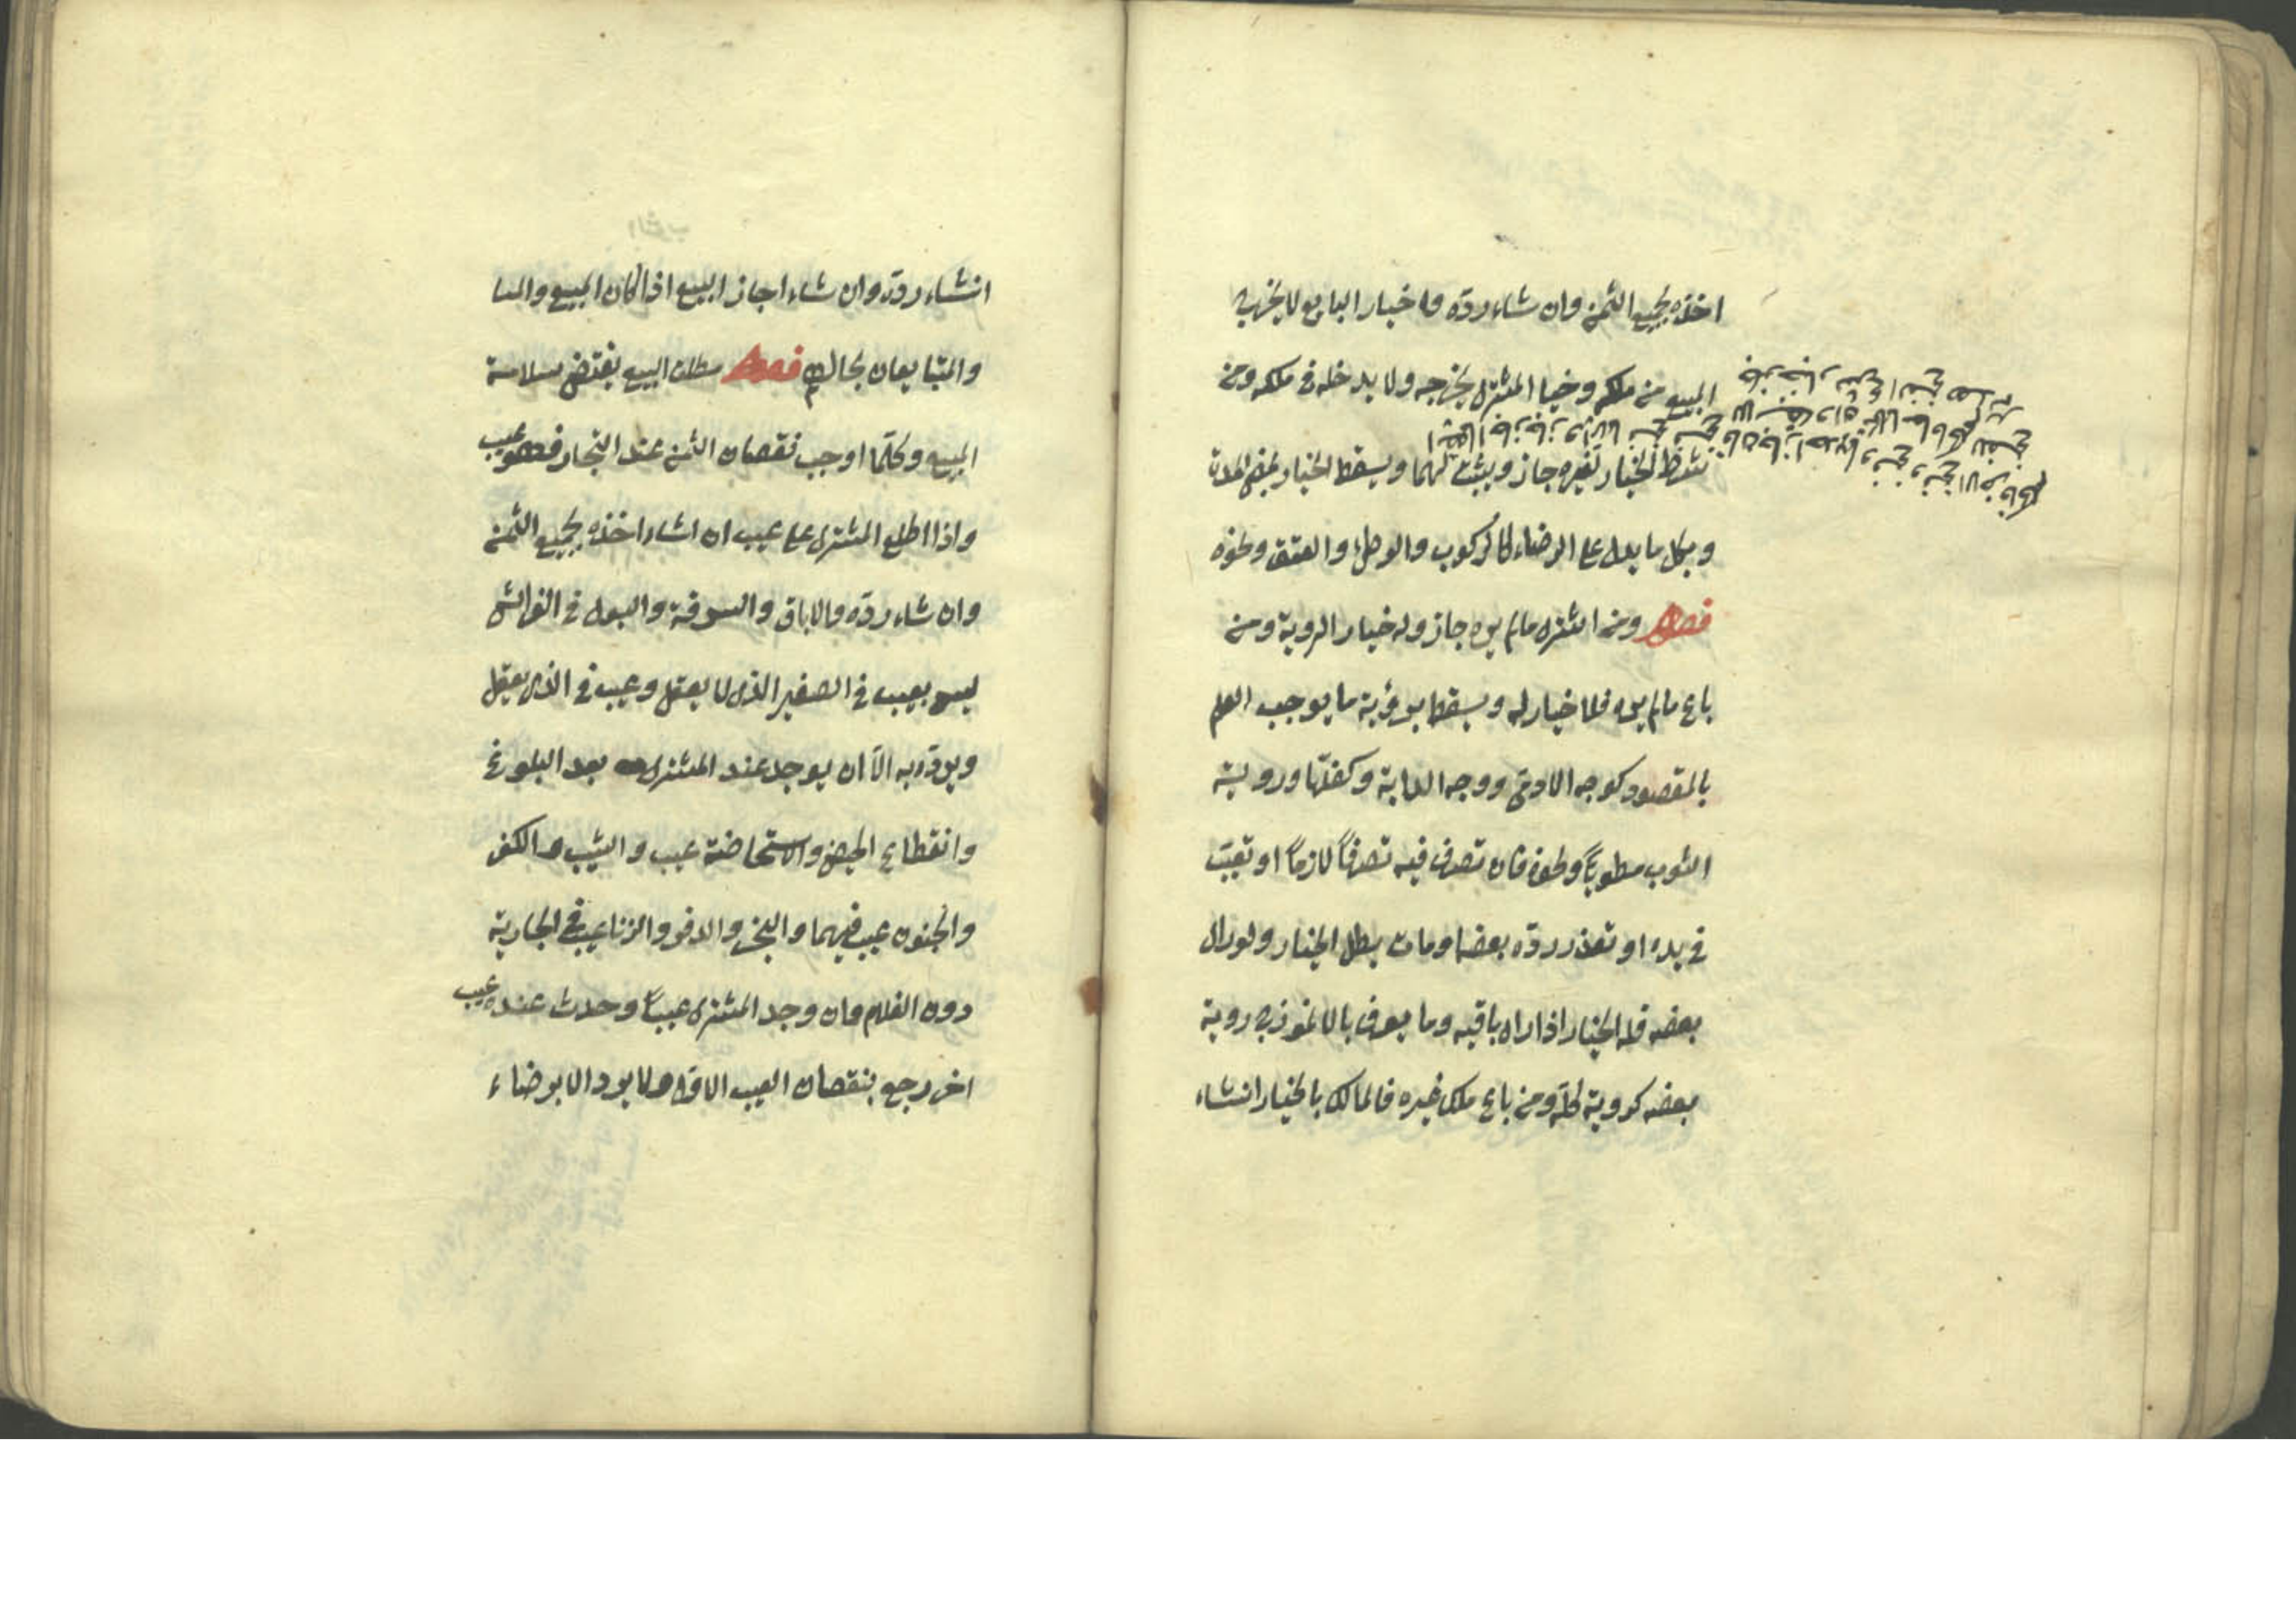 اخذه بجميع الثمن وان شاء رده وخيار البايع لا يخرج
المبيع من ملكه وخيار المشترى يخرجه ولا يدخله فى ملكه ومن
شرط الخيار لغيره جاز ويثبت لهما ويسقط الخيار بمضى المدة
وبكل ما يدل على الرضاء كالركوب والوطئ والعتق ونحوه
فصل ومن اشترى مالم يره جاز وله خيار الروية ومن
باع مالم يره فلا خيار له ويسقط برؤية ما يوجب العلم
بالمقصود كوجه الادمى ووجه الدابة وكفلها وروية
الثوب مطويًا ونحوه فان تصرف فيه تصرفًا لازمًا او تعيب
فى يده او تعذر رده بعضه او مات بطل الخيار ولو رأى
بعضه فله الخيار اذا راه باقيه وما يعرف بالانموذج روية
بعضه كروية كله ومن باع ملك غيره فالمالك بالخيار انشاء
انشاء رده وان شاء اجاز البيع اذا كان المبيع والمتبا
والمتبايعان بحالهم فصل مطلق البيع يقتضى سلامة
المبيع وكلما اوجب نقصان الثمن عند التجار فهو عيب
واذا اطلع المشترى على عيب ان شاء اخذه بجميع الثمن
وان شاء رده والاباق والسرقة والبول فى الفراش
ليس بعيب فى الصغير الذى لا يعقل وعيب فى الذى يعقل
ويرد به الّا ان يوجد عند المشترى بعد البلوغ
وانقطاع الحيض والاستحاضة عيب والشيب والكفر
والجنون عيب فيهما والبخر والدفر والزنا عيب فى الجارية
دون الغلام وان وجد المشترى عيبًا وحدث عنده عيب
اخر رجع بنقصان العيب الاول ولا يرد الا برضاء